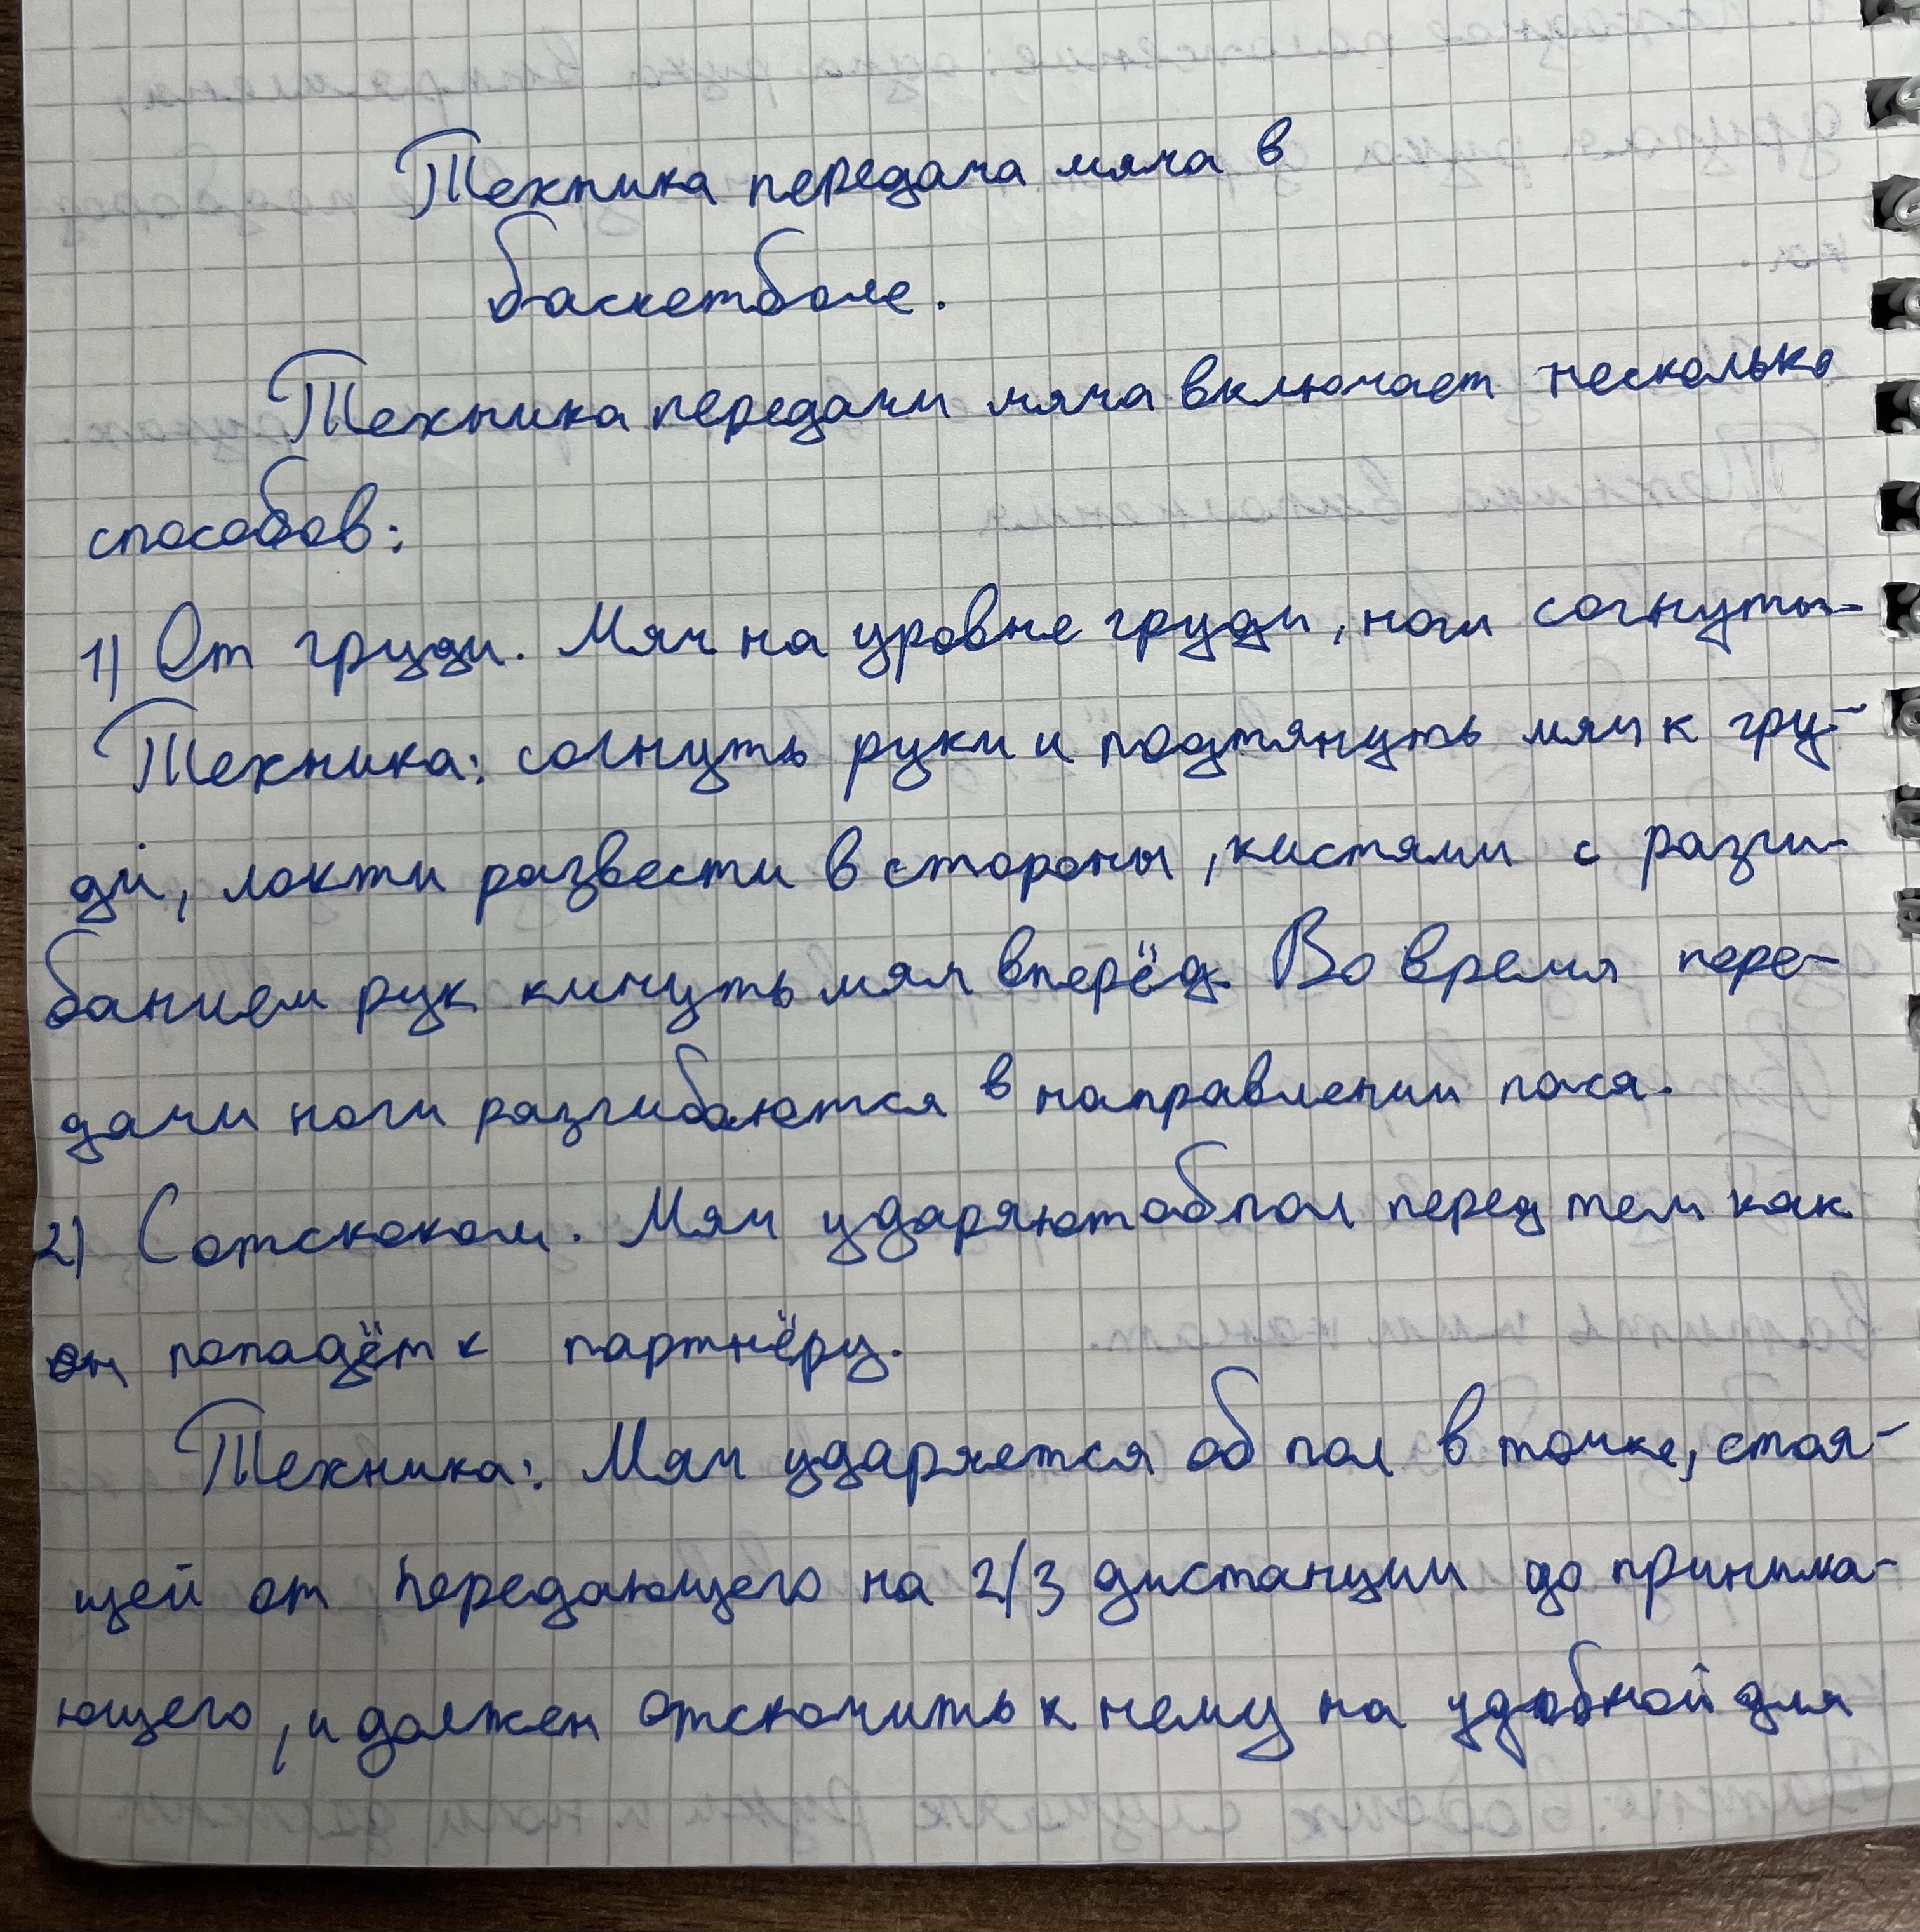 Техника передача мяча в
баскетболе.
Техника передачи мяча включает несколько
способов:
1) От груди. Мяч на уровне груди, ноги согнуты-
Техника: согнуть руки и подтянуть мяч к гру-
ди, локти развести в стороны, кистями с разги-
банием рук кинуть мяч вперёд. Во время пере-
дачи ноги разгибаются в направлении паса.
2) С отскоком. Мяч ударяют об пол перед тем как
он попадёт к партнёру.
Техника: Мяч ударяется об пол в точке, стоя-
щей от передающего на 2/3 дистанции до принима-
ющего, и должен отскочить к нему на удобной для